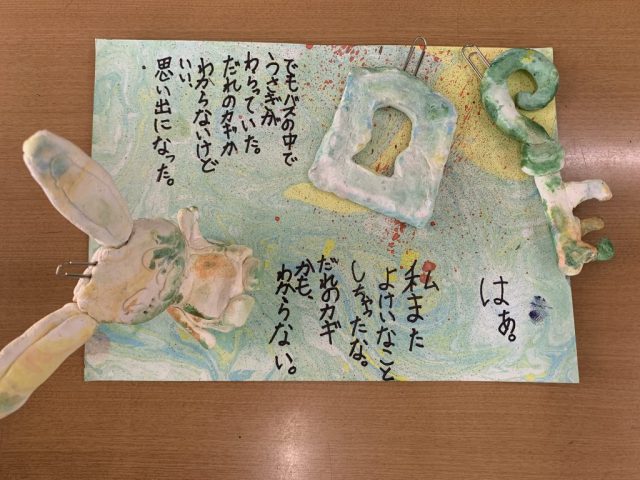 はあ。
私また
よけいなこと
しちゃったな。
だれのカギ
かも、
わからない。
でもバズの中で
うさぎが
わらっていた。
だれのカギか
わからないけど
いい、
思い出になった。